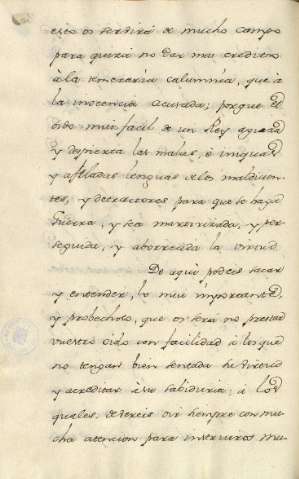 esto os servirá de mucho campo
para querer no dar mas credito
à la temeraria calumnia, que à
la inocencia acusada; porque el
oido mui facil de un Rey aguza
y despierta las malas, è iniquas
y afiladas lenguas de los maldicien-
tes, y detractores para que se haga
Guerra, y sea martirizada, y per-
seguida, y aborrecida la virtud
De aqui podeis sacar
y entender, lo mui importante,
y probechoso, que os será no prestar
vuestro oido con facilidad à los que
no tengan bien sentada su virtud
y acreditada su sabiduria; à los
quales, debereis oir siempre con mu-
cha atencion para instruiros mu-